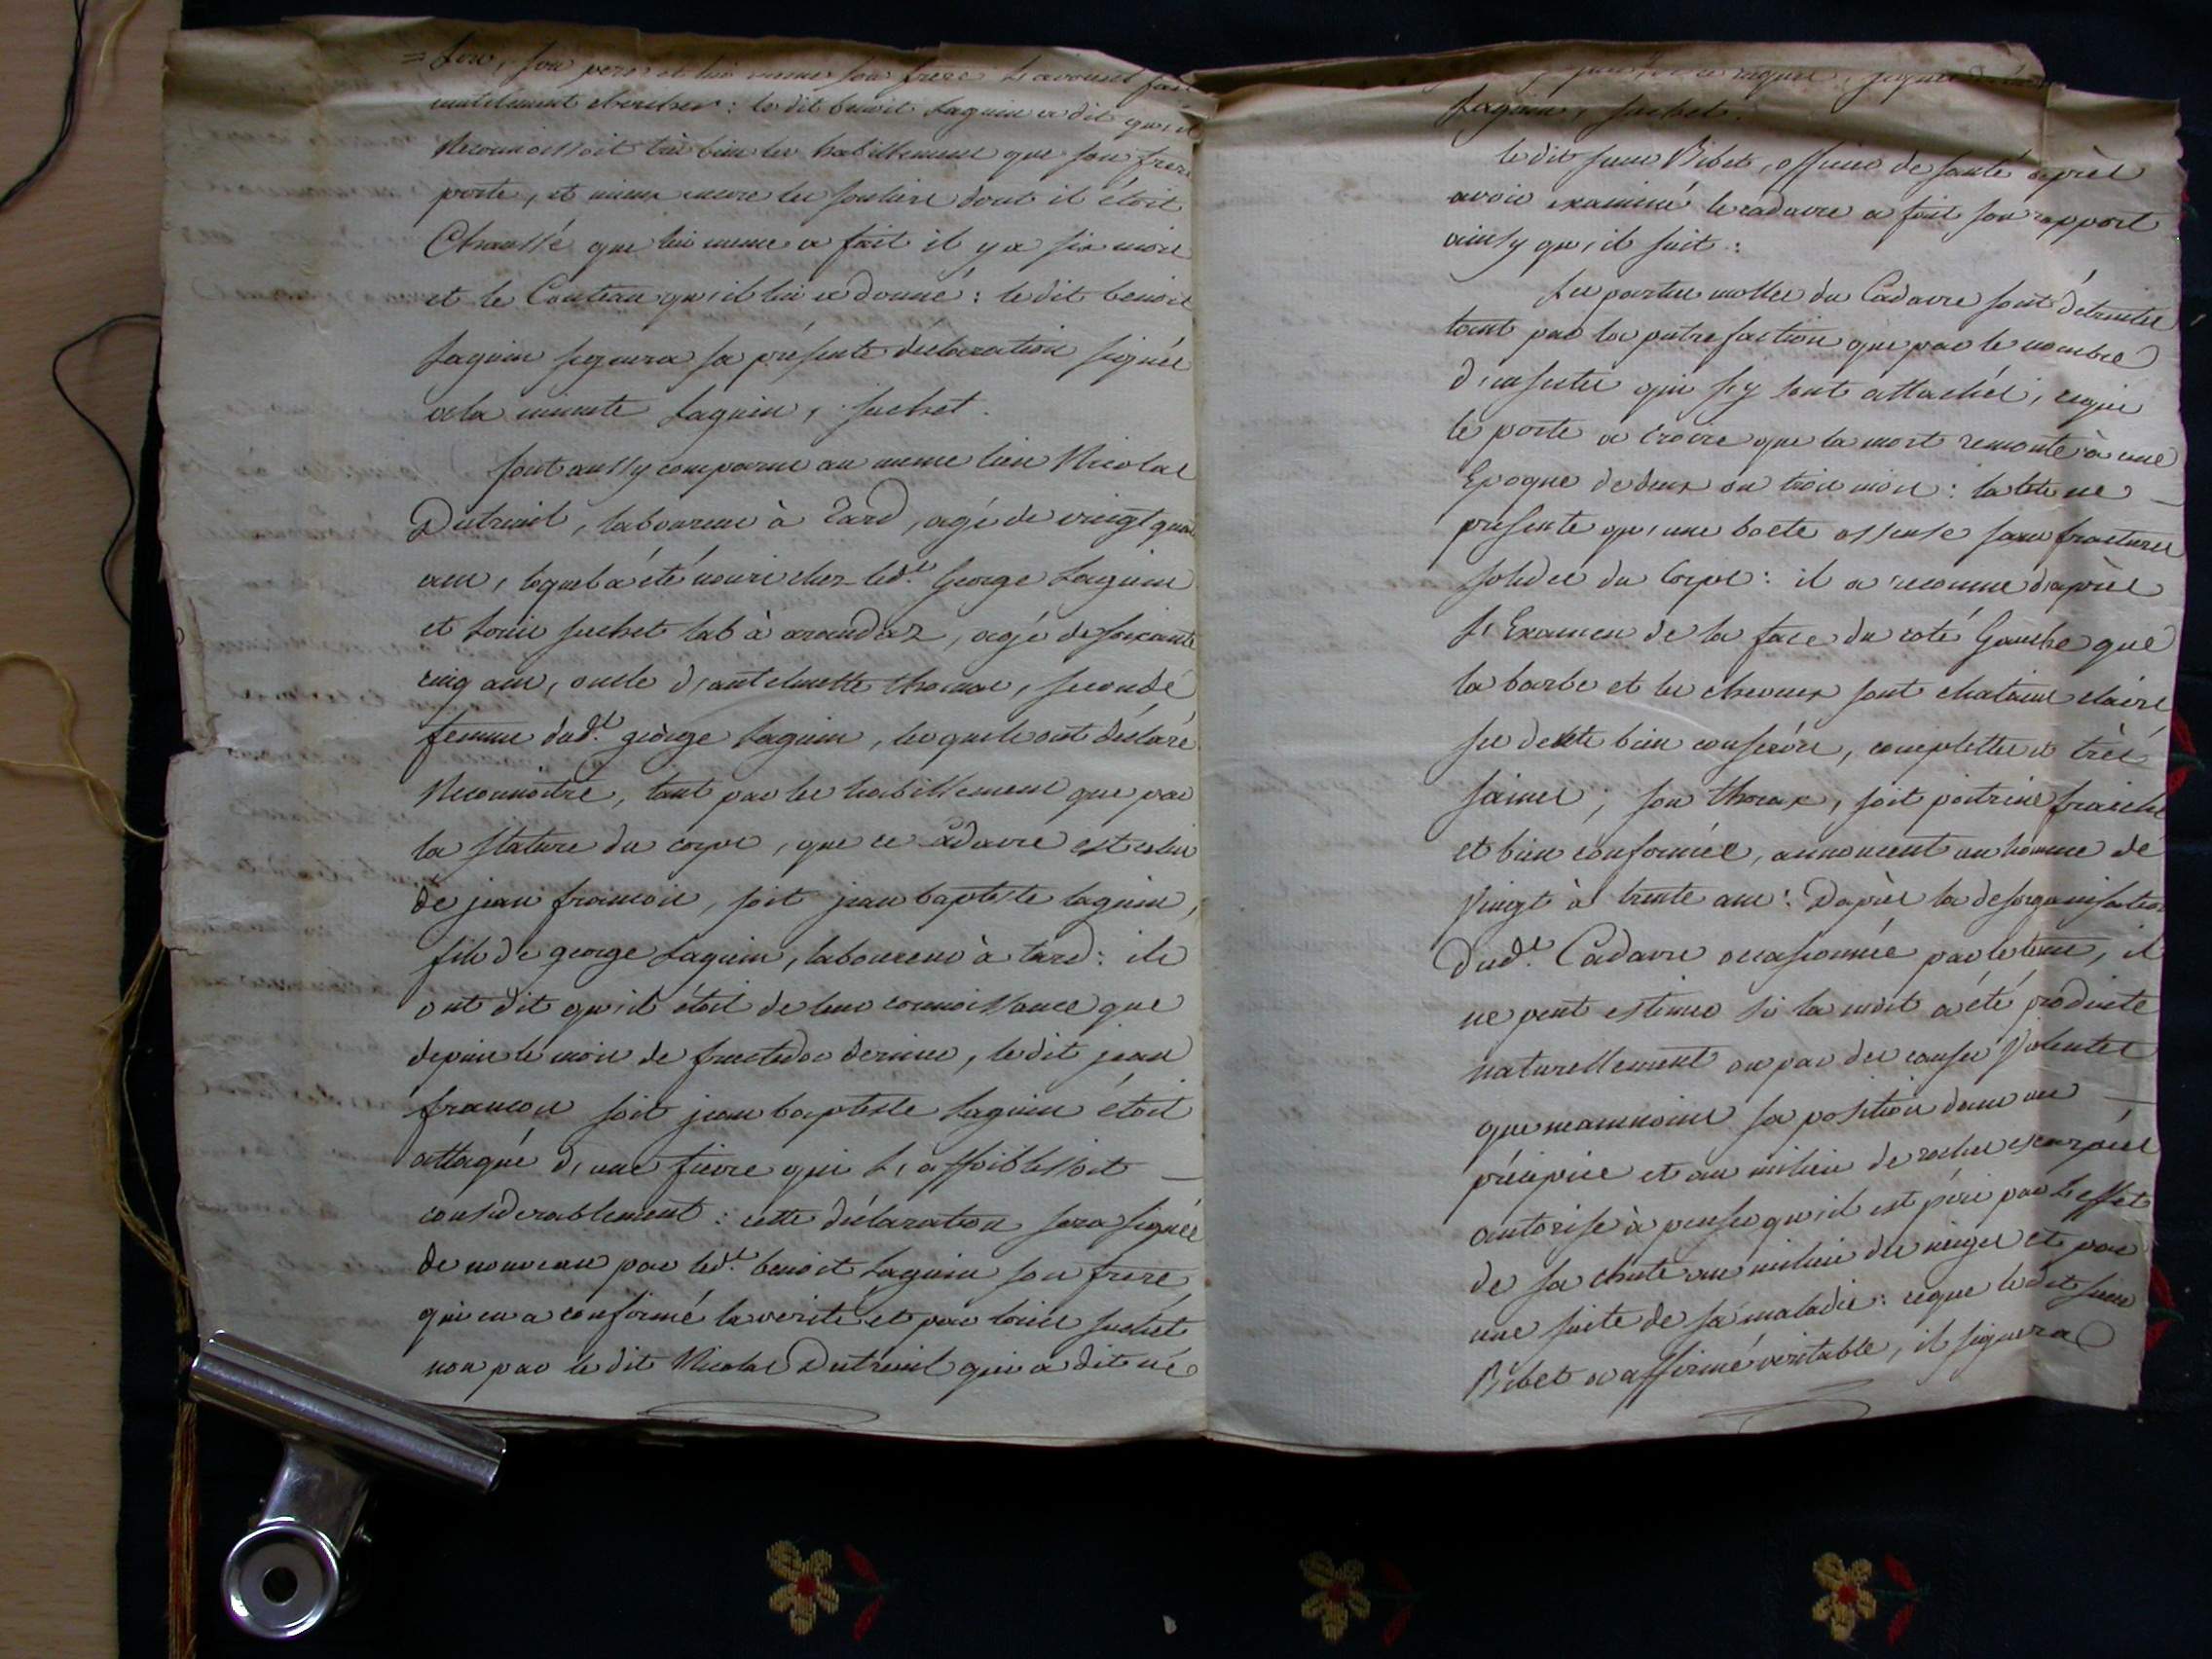 son père et lui meme son frere l'avoient fait
inutilement chercher : le dit benoit Laguin a dit qu'il
Reconnoissoit très bien les habillemens que son frere
porte, et mieux encore les souliers dont il étoit
Chaussé que lui meme a fait il y a six mois
et le Couteau qu'il lui a donné : le dit benoit
Laguin signera sa présente déclaration signée
a la minute Laguin, suchet.
sont aussy comparus au meme lieu Nicolas
Dutreuil, laboureur à tard, agé de vingt quatre
ans, lequel a été nouri chez led.t George Laguin
et Louis suchet lab à arandas, agé de soixante
cinq ans, oncle d'antelmette thomas, seconde
femme dud.t george Laguin, lesquels ont déclaré
Reconnoitre, tant par les habillemens que par
la stature du corps, que ce Cadavre est celui
de jean francois, soit jean baptiste laguin,
fils de george Laguin, laboureur à tard : ils
ont dit qu'il étoit de leur connoissance que
depuis le mois de fructidor dernier, le dit jean
francois soit jean baptiste Laguin étoit
attaqué d'une fievre qui l'affoiblissoit
considerablement : cette déclaration sera signée
de nouveau par led.t benoit Laguin son frere
qui en a confirmé la verité et par Louis suchet
non par le dit Nicolas Dutreuil qui a dit ne
Laguin, suchet.
le dit sieur Bibet, officier de santé après
avoir examiné le cadavre a fait son rapport
ainsy qu'il suit :
Les parties molles du Cadavre sont détruites
tant par la putrefaction que par le nombre
d'insectes qui s'y sont attachés, ce qui
le porte a croire que la mort remonte à une
Epoque de deux ou trois mois : la tete ne
presente qu'une boete osseuse sans fractures
solides du Corps : il a reconnu d'après
l'Examen de la face du coté Gauche que
la barbe et les cheveux sont chatains clairs
ses dents bien conservées, complettes et très
saines ; son thorax, soit poitrine fraiche
et bien conformée, annoncent un homme de
vingt à trente ans : Dapres la desorganisation
Dud.t Cadavre occasionnée par le tems, il
ne peut estimer si la mort a été produite
naturellement ou par des causes violentes
que neanmoins sa position dans un
précipice et au milieu de rochers escarpés
autorise à penser qu'il est péri par l'effet
de sa chute au milieu des neiges et par
une suite de sa maladie : ce que le dit sieur
Bibet a affirmé veritable, il signera